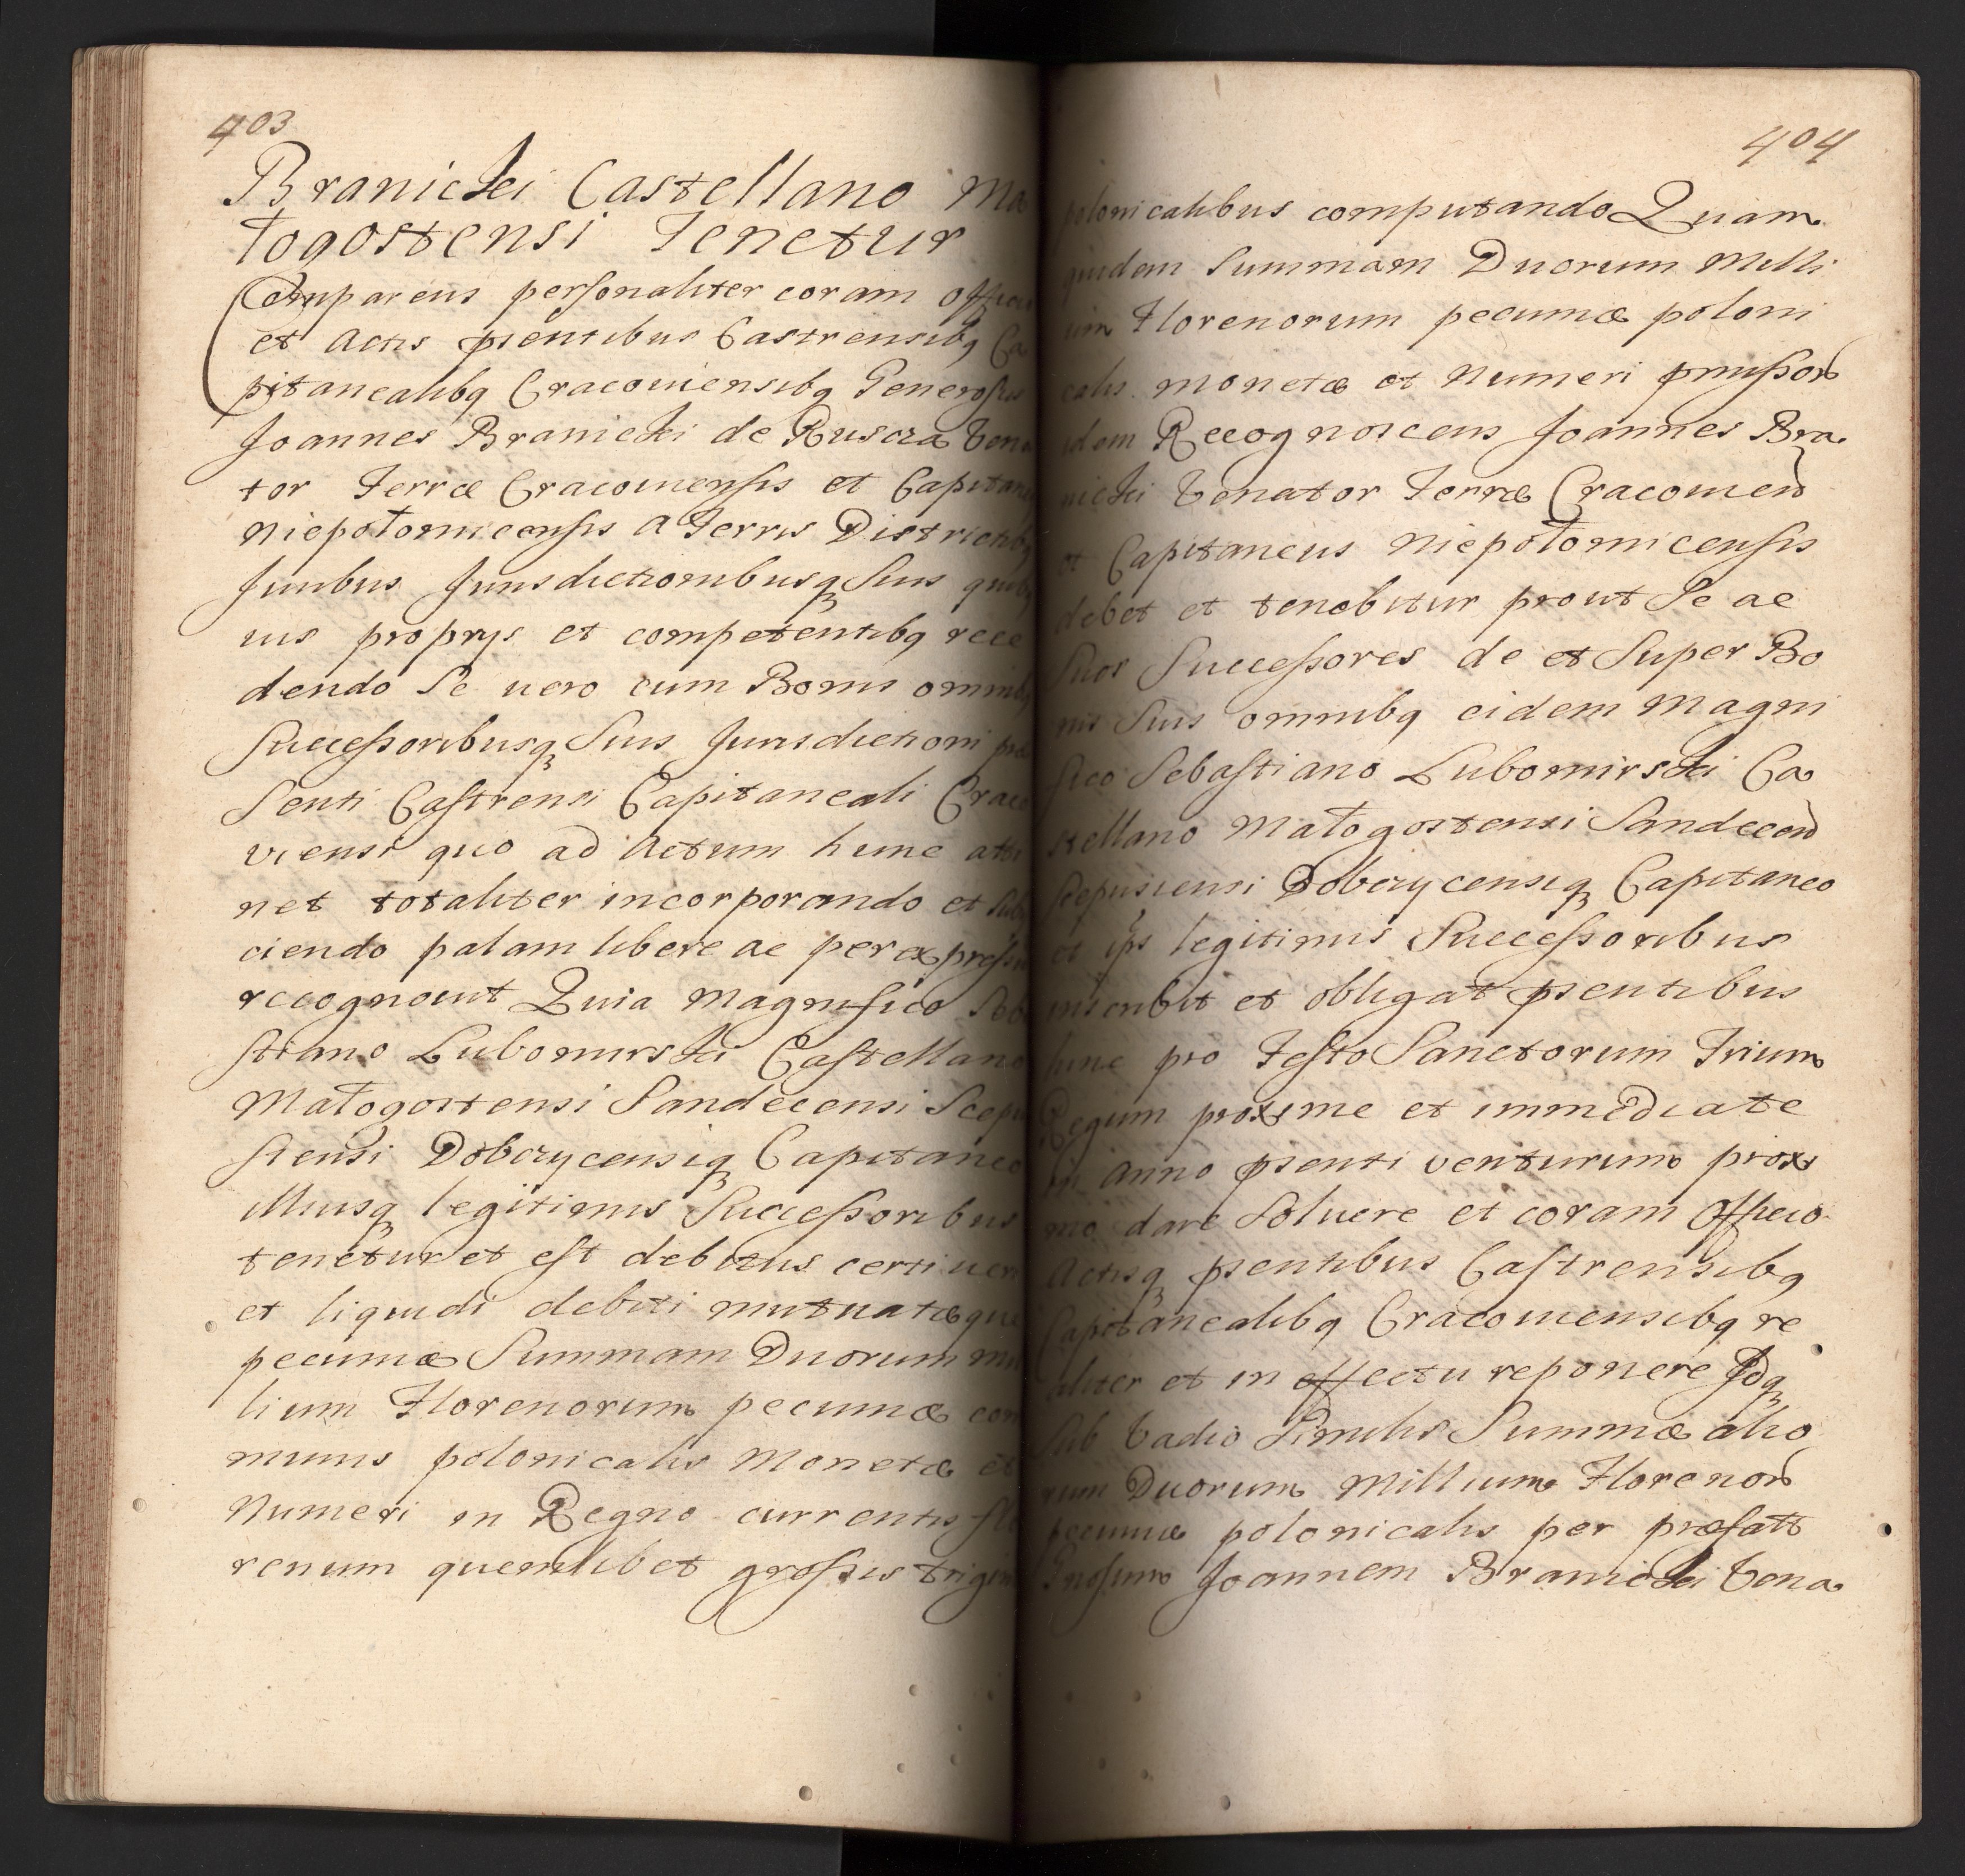 403
Branicki Castellano Ma
łogostensi Tenetur
Comparens personaliter coram Officio
et Actis pñentibus Castrensibq Ca
pitanealibq Cracoviensibq Generosus
Joannes Branicki de Ruscza Vena
tor Terræ Cracoviensis et Capitane
Niepołomicensis a Terris Districtibq
Juribus Jurisdictionibusq Suis quibq
uis proprijs et competentibq rece
dendo Se vero cum Bonis omnibq
Successoribusq Suis Jurisdictioni præ
senti Castrensi Capitaneali Craco
viensi quo ad Actum hunc atti
net totaliter incorporando et Subi
ciendo palam libere ac per expressum
recognouit Quia Magnifico Seba
stiano Lubomirski Castellano
Małogostensi Sandecensi Scepu
siensi Dobczycensiq Capitaneo
Illiusq legitimis Successoribus
tenetur et est debitus certi veri
et liquidi debiti mutuatæque
pecuniæ Summam Duorum Mil
lium Florenorum pecuniæ com
munis polonicalis Monetæ et
Numeri in Regno currentis flo
renum quemlibet grossis trigin
404
polonicalibus computando Quam
quidem Summam Duorum Milli
um Florenorum pecuniæ poloni
calis monetæ et Numeri pmissor
idem Recognoscens Joannes Bra
nicki Venator Terræ Cracovien
et Capitaneus Niepołomicensis
debet et tenebitur prout Se ac
Suos Successores de et Super Bo
nis Suis omnibq eidem Magni
fico Sebastiano Lubomirski Ca
stellano Małogostensi Sandecen
Scepusiensi Dobczycensiq Capitaneo
et ips legitimis Successoribus
inscribit et obligat pñentibus
hunc pro Festo Sanctorum Trium
Regum proxime et immediate
in Anno pñenti venturum proxi
mo dare Soluere et coram Officio
Actisq pñentibus Castrensibq
Capitanealibq Cracoviensibq re
aliter et in effectu reponere Idq
Sub Vadio Similis Summæ alio
rum Duorum Millium Florenor
pecuniæ polonicalis per præfatt
Gñosum Joannem Branicki Vena